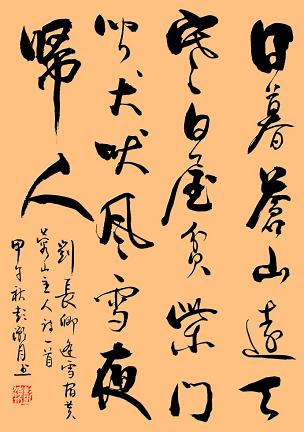 日暮蒼山遠天
寒白屋貧柴門
聞犬吠風雪夜
歸人
劉長卿逢雪宿芙
蓉山主人诗一首
甲午秋彭月书